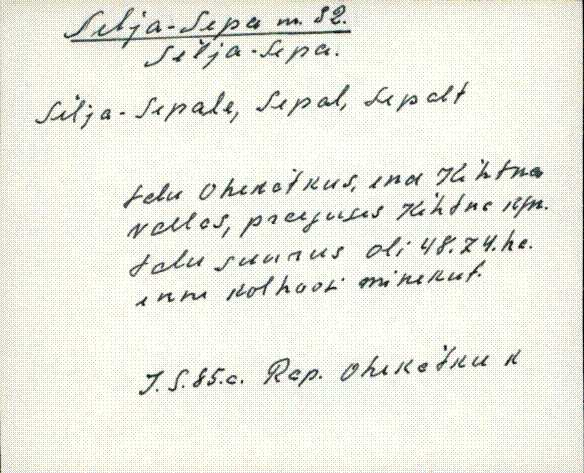 Silja-Sepa m. 82.
Silja-Sepa.
Silja-Sepale, Sepal, Sepalt
talu Ohekõtkus, end Kihtna
vallas, praeguses Kihtna kpn.
talu suurus oli 48.74.ha.
enne kolhoosi minekut.
J.S.85.a. Rap. Ohekõtku k